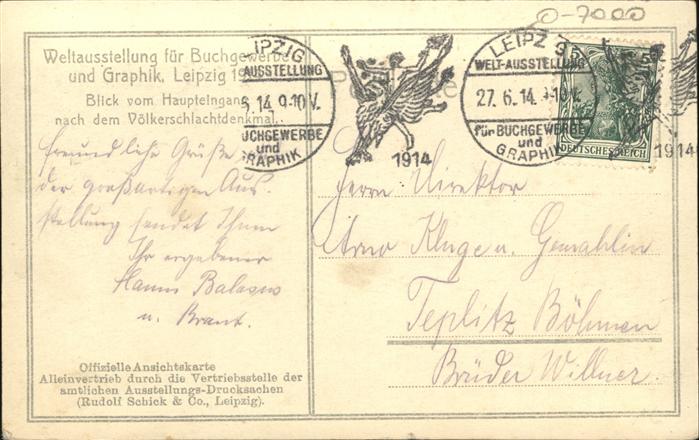 O-7000
Weltausstellung für Buchgewerbe
und Graphik, Leipzig
Blick vom Haupteingang
nach dem Völkerschlachtdenkmal.
IPZIG
AUSSTELLUNG
6.14.9-10V.
UCHGEWERBE
und
GRAPHIK
1914
LEIPZIG
WELT-AUSSTELLUNG
27.6.14. 9-10V.
für BUCHGEWERBE
und
GRAPHIK
5
DEUTSCHES REICH
1914
freundliche Grüße
der großartigen Aus-
stellung sendet Ihnen
Ihr ergebener
Hanns
u. Braut.
Herrn Direktor
Arno Kluge u. Gemahlin
Teplitz Böhmen
Brüder Willner.
Offizielle Ansichtskarte
Alleinvertrieb durch die Vertriebsstelle der
amtlichen Ausstellungs-Drucksachen
(Rudolf Schick & Co., Leipzig).